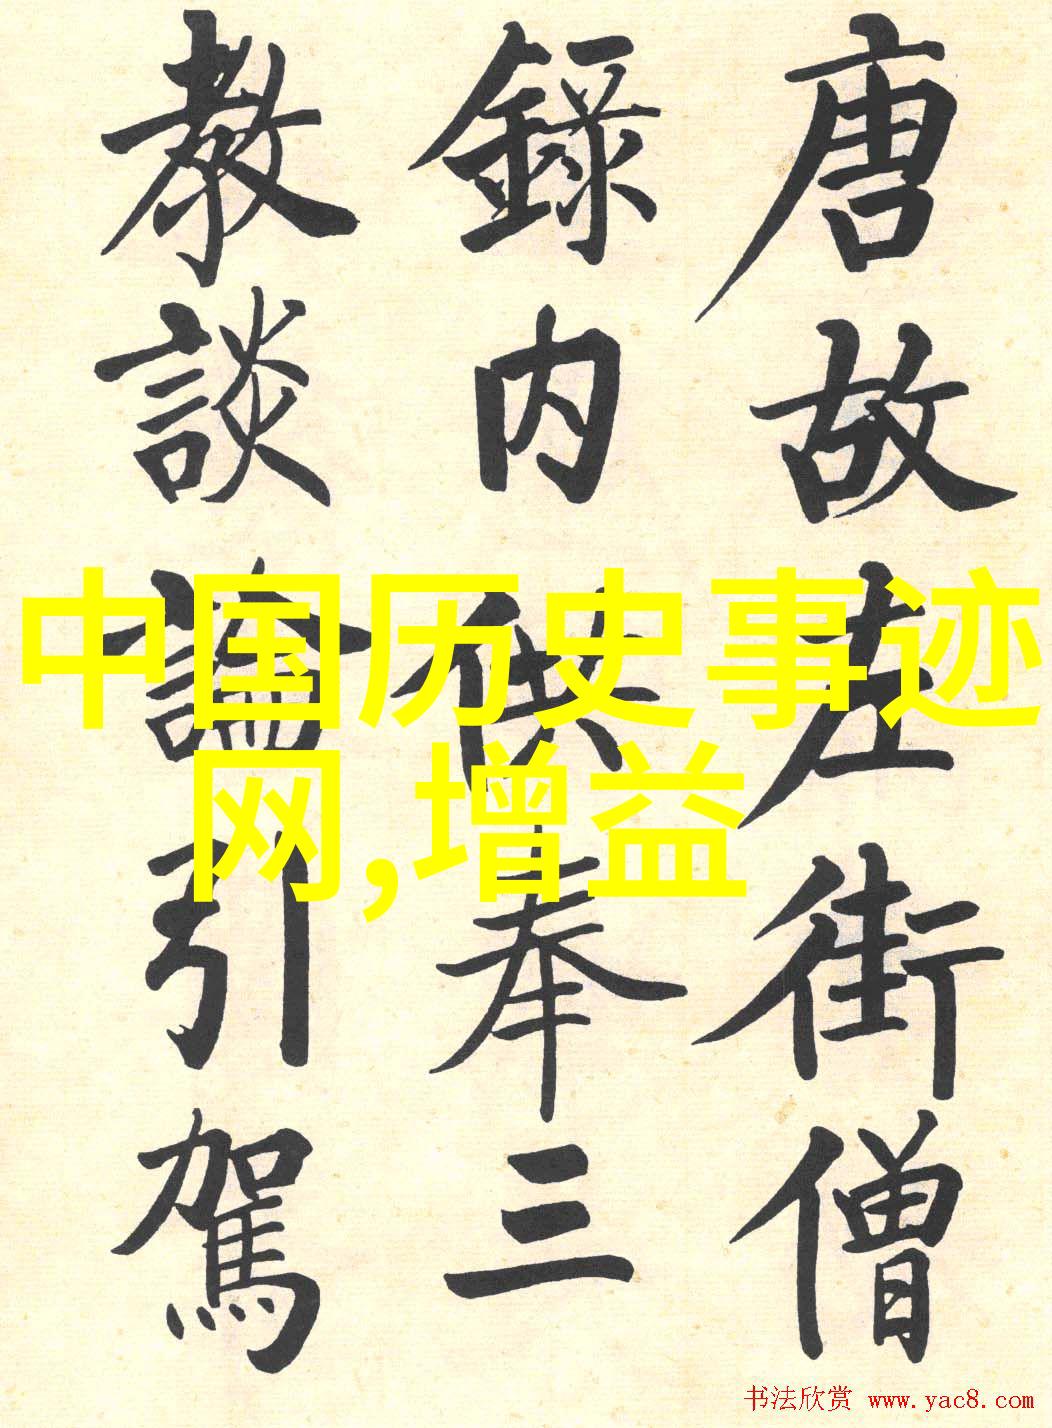 唐故左街僧
錄内供奉三
教談論引駕
中国历史事迹
网,增益
书法欣赏 www.yac8.com